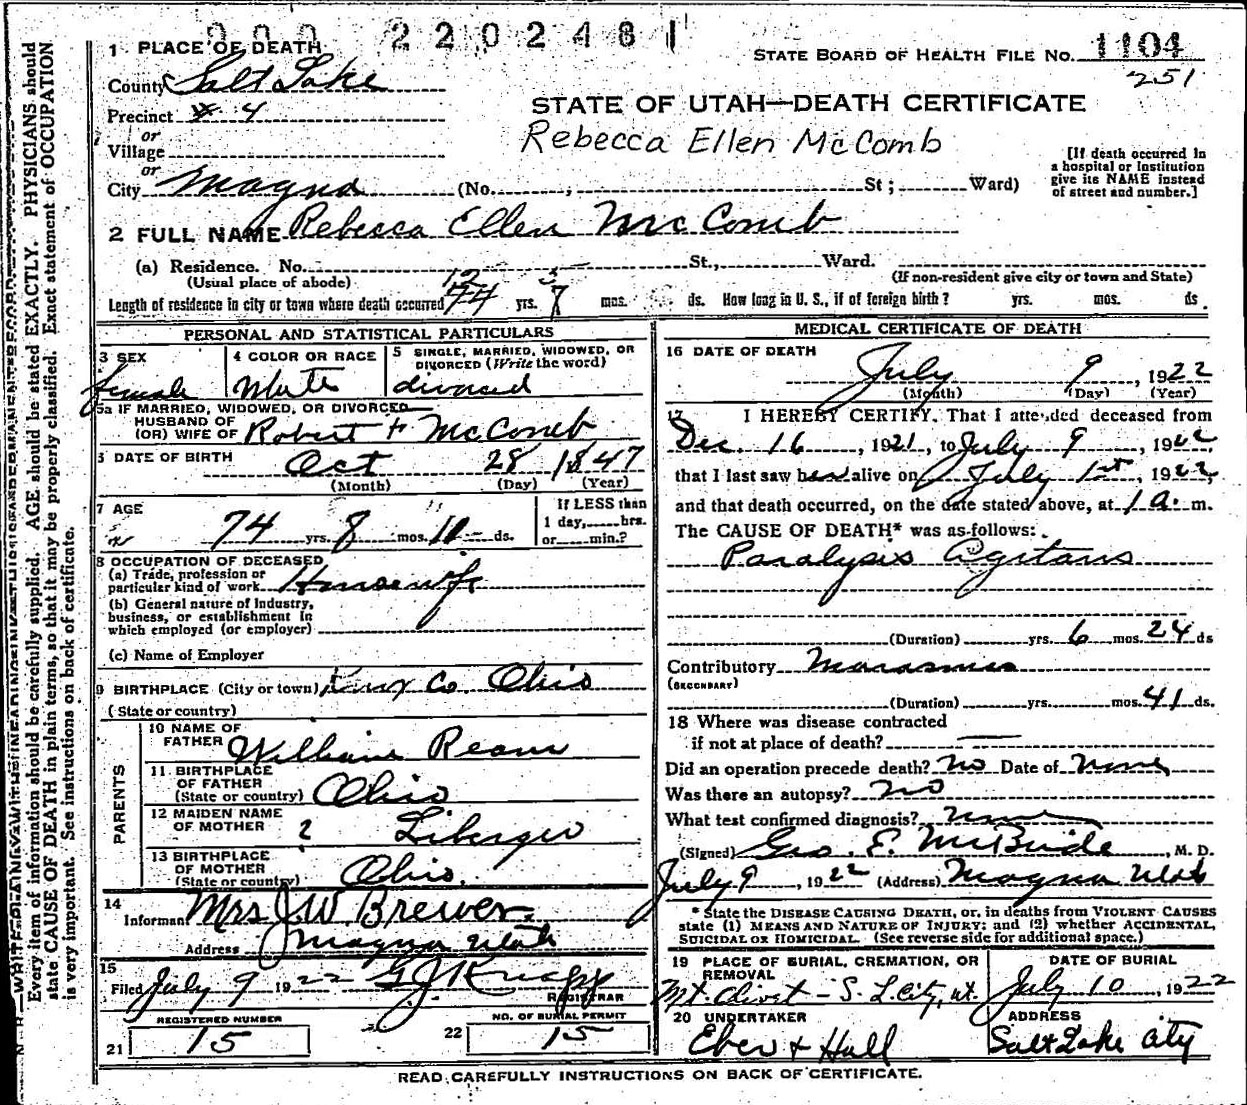 000 2202481
1 PLACE OF DEATH
County Salt Lake
STATE BOARD OF HEALTH FILE No. 1104
251
Precinct # 4
STATE OF UTAH—DEATH CERTIFICATE
or
Village
Rebecca Ellen McComb
or
City Magna (No. ; St ; Ward)
[If death occurred in a hospital or institution give its NAME instead of street and number.]
2 FULL NAME Rebecca Ellen McComb
(a) Residence. No. St., Ward.
(Usual place of abode) (If non-resident give city or town and State)
12 5
Length of residence in city or town where death occurred 74 yrs. 8 mos. ds. How long in U. S., if of foreign birth? yrs. mos. ds.
PERSONAL AND STATISTICAL PARTICULARS
3 SEX female
4 COLOR OR RACE White
5 SINGLE, MARRIED, WIDOWED, OR DIVORCED (Write the word) divorced
5a IF MARRIED, WIDOWED, OR DIVORCED
HUSBAND OF
(OR) WIFE OF Robert F McComb
6 DATE OF BIRTH Oct 28 1847
(Month) (Day) (Year)
7 AGE 74 yrs. 8 mos. 11 ds.
If LESS than 1 day, hrs. or min.?
8 OCCUPATION OF DECEASED
(a) Trade, profession or particular kind of work Housewife
(b) General nature of Industry, business, or establishment in which employed (or employer)
(c) Name of Employer
9 BIRTHPLACE (City or town) Knox Co. Ohio
(State or country)
PARENTS
10 NAME OF FATHER William Ream
11. BIRTHPLACE OF FATHER (State or country) Ohio
12 MAIDEN NAME OF MOTHER ?
13 BIRTHPLACE OF MOTHER (State or country) Ohio.
14 Informant Mrs J W Brewer.
Address Magna Utah
15 Filed July 9 1922 G J Knapp
REGISTRAR
REGISTERED NUMBER
21 15
NO. OF BURIAL PERMIT
22 15
MEDICAL CERTIFICATE OF DEATH
16 DATE OF DEATH
July 9, 1922
(Month) (Day) (Year)
17 I HEREBY CERTIFY, That I attended deceased from
Dec. 16, 1921, to July 9, 1922
that I last saw her alive on July 1st, 1922,
and that death occurred, on the date stated above, at 1 a. m.
The CAUSE OF DEATH* was as follows:
Paralysis Agitans
(Duration) yrs. 6 mos. 24 ds
Contributory Marasmus
(SECONDARY)
(Duration) yrs. mos. 41 ds.
18 Where was disease contracted
if not at place of death?
Did an operation precede death? No Date of None
Was there an autopsy? No
What test confirmed diagnosis? None
(Signed) Geo. E. McBride, M. D.
July 9, 1922 (Address) Magna Utah
* State the DISEASE CAUSING DEATH, or, in deaths from VIOLENT CAUSES
state (1) MEANS AND NATURE OF INJURY; and (2) whether ACCIDENTAL,
SUICIDAL OR HOMICIDAL. (See reverse side for additional space.)
19 PLACE OF BURIAL, CREMATION, OR REMOVAL
Mt. Olivet - S. L. City, Ut.
DATE OF BURIAL
July 10, 1922
20 UNDERTAKER
Eber & Hall
ADDRESS
Salt Lake City
READ CAREFULLY INSTRUCTIONS ON BACK OF CERTIFICATE.
Every item of information should be carefully supplied. AGE should be stated EXACTLY. PHYSICIANS should
state CAUSE OF DEATH in plain terms, so that it may be properly classified. Exact statement of OCCUPATION
is very important. See instructions on back of certificate.